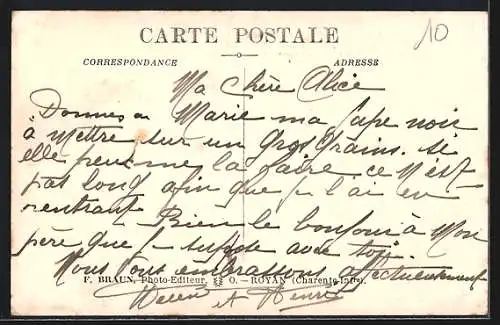 CARTE POSTALE
10
CORRESPONDANCE ADRESSE
Ma chère Alice
Donnes a Marie ma jupe noir
à mettre sur un gros grains. si
elle peux me la faire ce n'est
pas long afin que je l'ai en
rentrant Bien le bonjour à mon
père que je suppose avec toi.
Nous vous embrassons affectueusement
F. BRAUN, Photo-Editeur, O. — ROYAN (Charente-Infre).
et Henri